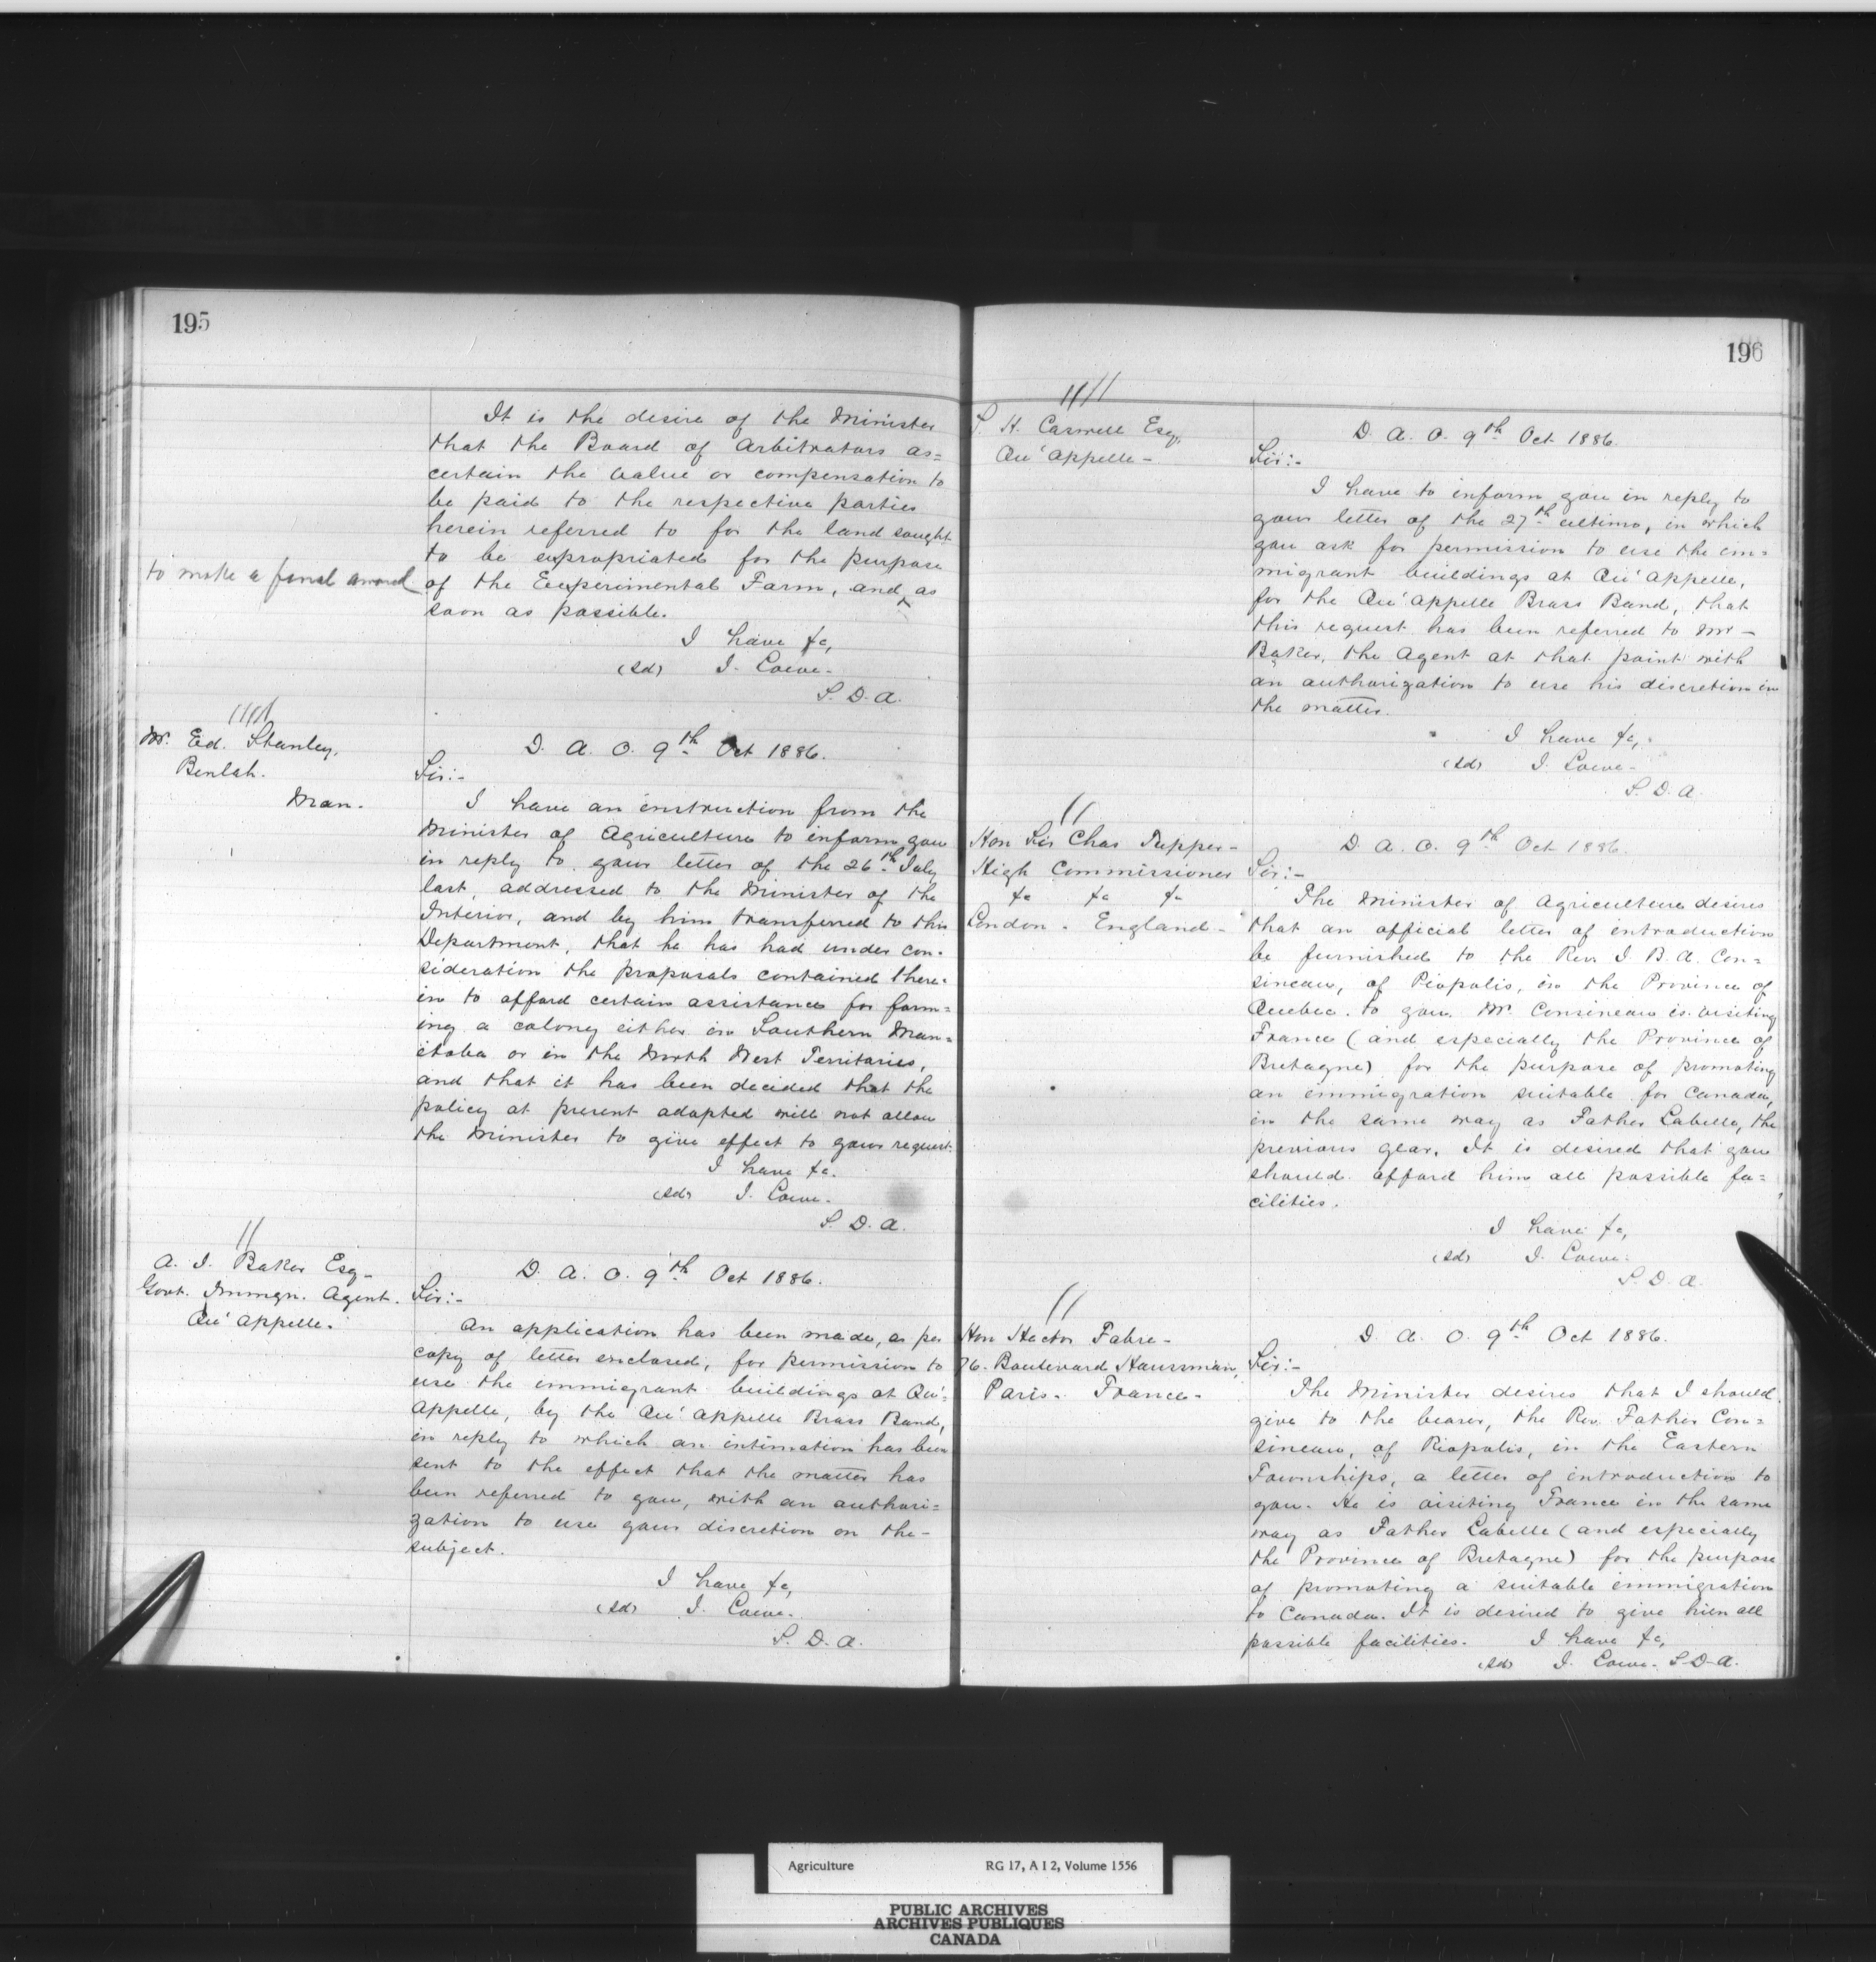 195
It is the desire of the Minister
that the Board of Arbitrators as=
certain the value or compensation to
be paid to the respective parties
herein referred to for the land sought
to be expropriated for the purpose
to make a final award
of the Eexperimental Farm, and ^ as
soon as possible.
I have &c,
(sd) J. Lowe.
S. D. A.
Mr. Ed. Stanley,
Beulah.
Man.
D. A. O. 9th Oct 1886.
Sir:-
I have an instruction from the
Minister of Agriculture to inform you
in reply to your letter of the 26th July
last, addressed to the Minister of the
Interior, and by him transferred to this
Department, that he has had under con-
sideration the proposals contained there-
in to afford certain assistance for form=
ing a colony either in Southern Man=
itoba or in the North West Territories,
and that it has been decided that the
policy at present adopted will not allow
the Minister to give effect to your request.
I have &c.
(sd) J. Lowe.
S. D. A.
A. J. Baker Esq-
Govt. Immgn. Agent.
Qu'appelle.
D. A. O. 9th Oct 1886.
Sir:-
An application has been made, as per
copy of letter enclosed, for permission to
use the immigrant buildings at Qu'=
Appelle, by the Qu'appelle Brass Band,
in reply to which an intimation has been
sent to the effect that the matter has
been referred to you, with an authori=
zation to use your discretion on the-
subject.
I have &c,
(sd) J. Lowe.
S. D. A.
196
S. H. Caswell Esq,
Qu'appelle-
D. A. O. 9th Oct 1886.
Sir:-
I have to inform you in reply to
your letter of the 27th ultimo, in which
you ask for permission to use the im=
migrant buildings at Qu'appelle,
for the Qu'appelle Brass Band, that
this request has been referred to Mr-
Baker, the Agent at that point with
an authorization to use his discretion in
the matter.
I have &c,
(sd) J. Lowe-
S. D. A.
Hon Sir Chas Tupper-
High Commissioner
&c &c &c
London. England-
D. A. O. 9th Oct 1886.
Sir:-
The Minister of Agriculture desires
that an official letter of introduction
be furnished to the Rev J. B. A. Cou=
sineau, of Piopolis, in the Province of
Quebec. to you. Mr. Cousineau is visiting
France (and especially the Province of
Bretagne) for the purpose of promoting
an immigration suitable for Canada,
in the same way as Father Labelle, the
previous year. It is desired that you
should afford him all possible fa=
cilities.
I have &c,
(sd) J. Lowe.
S. D. A.
Hon Hector Fabre-
76. Boulevard Haussman,
Paris. France-
D. A. O. 9th Oct 1886.
Sir:-
The Minister desires that I should
give to the bearer, the Rev. Father Cou=
sineau, of Piopolis, in the Eastern
Townships, a letter of introduction to
you. He is visiting France in the same
way as Father Labelle (and especially
the Province of Bretagne) for the purpose
of promoting a suitable immigration
to Canada. It is desired to give him all
possible facilities. I have &c,
(sd) J. Lowe. S. D. A.
Agriculture RG 17, A I 2, Volume 1556
PUBLIC ARCHIVES
ARCHIVES PUBLIQUES
CANADA